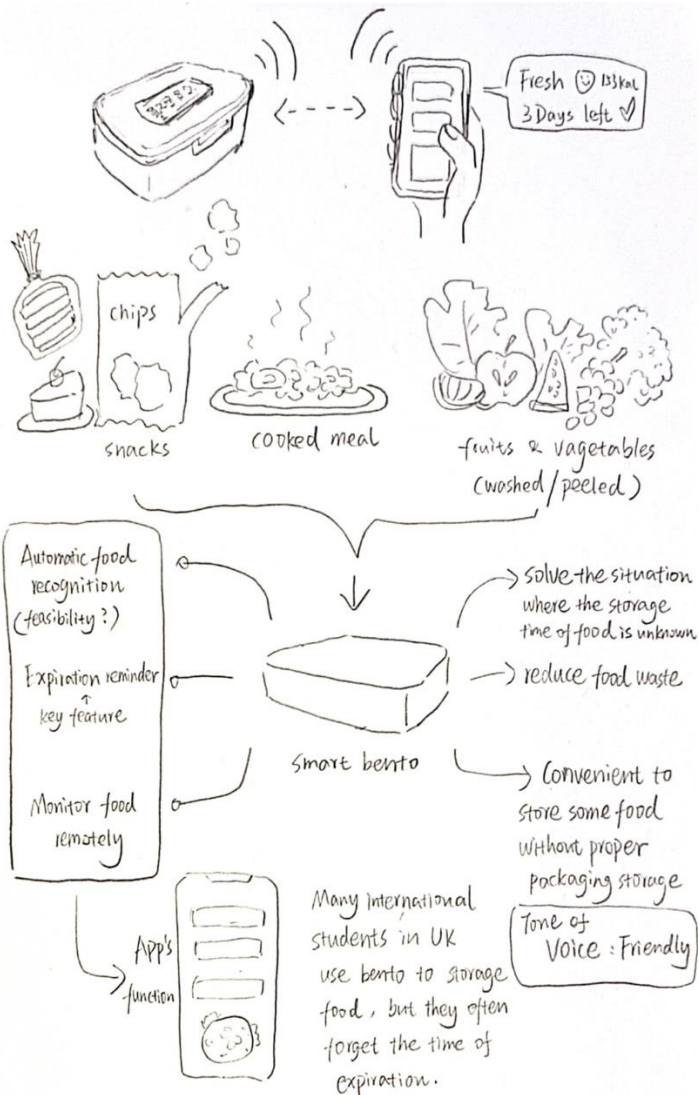 Fresh 133kal
3 Days left
chips
snacks
cooked meal
fruits & vagetables
(washed/peeled)
Automatic food
recognition
(feasibility?)
Expiration reminder
key feature
Monitor food
remately
smart bento
solve the situation
where the storage
time of food is unknown
reduce food waste
Convenient to
store some food
without proper
packaging storage
Tone of
Voice : Friendly
App's
function
Many international
students in UK
use bento to storage
food, but they often
forget the time of
expiration.